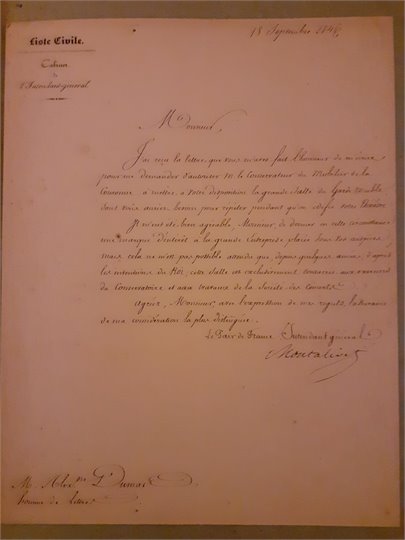 18 Septembre 1846
Liste Civile.
Cabinet
de
l'Intendant-général
Monsieur,
J'ai reçu la lettre que vous m'avez fait l'honneur de m'écrire
pour me demander d'autoriser M. le Conservateur du Mobilier de la
Couronne à mettre à votre disposition la grande salle du Garde Meuble
dont vous auriez besoin pour répéter pendant qu'on édifie votre Théâtre
Il m'eut été bien agréable, Monsieur, de donner en cette circonstance
une marque d'intérêt à la grande Entreprise placée sous vos auspices
mais cela ne m'est pas possible attendu que depuis quelques années, d'après
les intentions du Roi, cette salle est exclusivement consacrée aux exercices
du Conservatoire et aux travaux de la Société des Concerts
Agréez, Monsieur, avec l'expression de mes regrets, l'assurance
de ma considération la plus distinguée.
Le Pair de France Intendant général
Montalivet
M. Alex.dre Dumas
homme de lettres